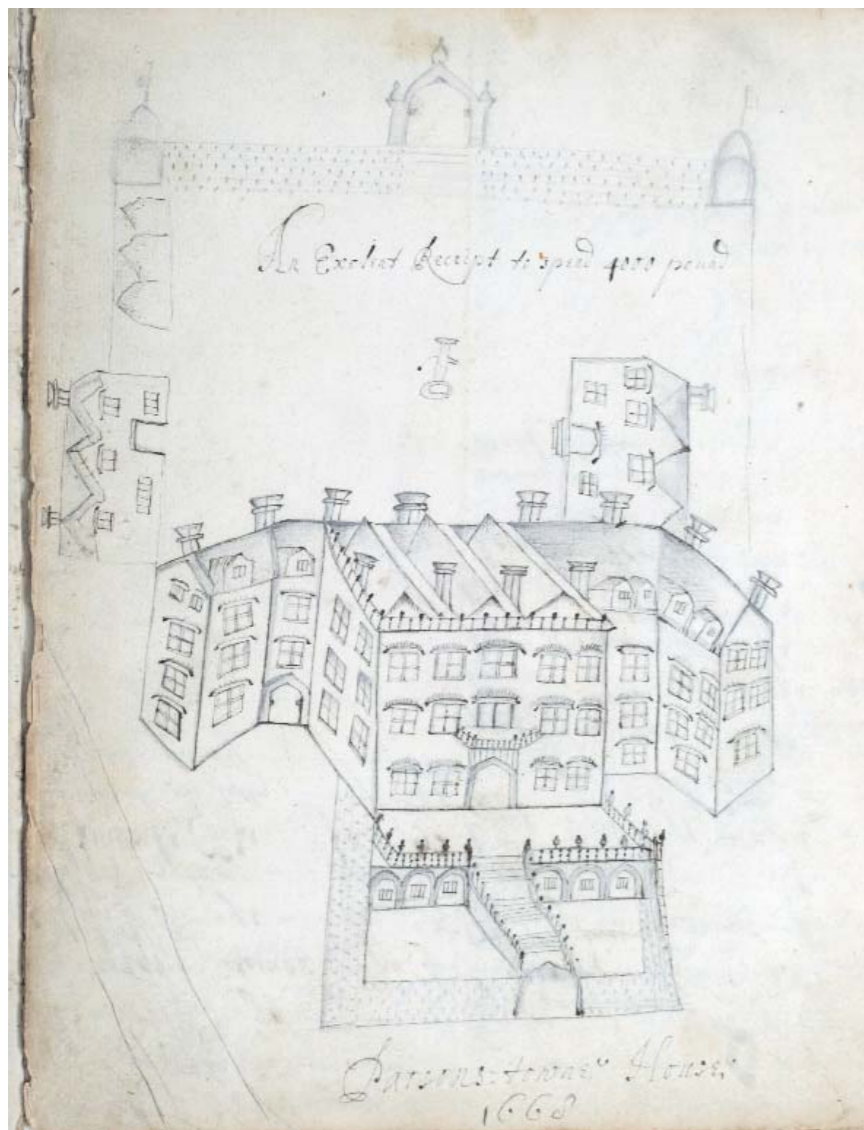 An Exclent Receipt to spend 4000 pound
Parsons:towne House:
1668